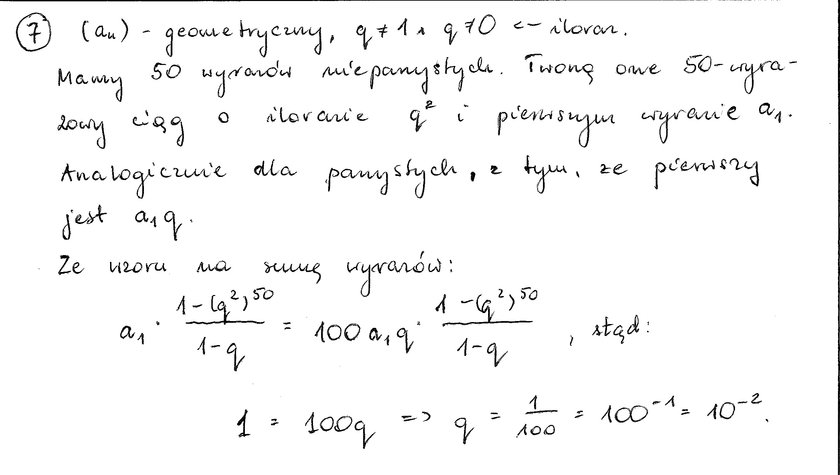 7 (aₙ) - geometryczny, q ≠ 1 ∧ q ≠ 0 <- iloraz.
Mamy 50 wyrazów nieparzystych. Tworzą one 50-wyra-
zowy ciąg o ilorazie q² i pierwszym wyrazie a₁.
Analogicznie dla parzystych, z tym, że pierwszy
jest a₁q.
Ze wzoru na sumę wyrazów:
a₁ · (1-(q²)⁵⁰)/(1-q) = 100 a₁q · (1-(q²)⁵⁰)/(1-q), stąd:
1 = 100q => q = 1/100 = 100⁻¹ = 10⁻².